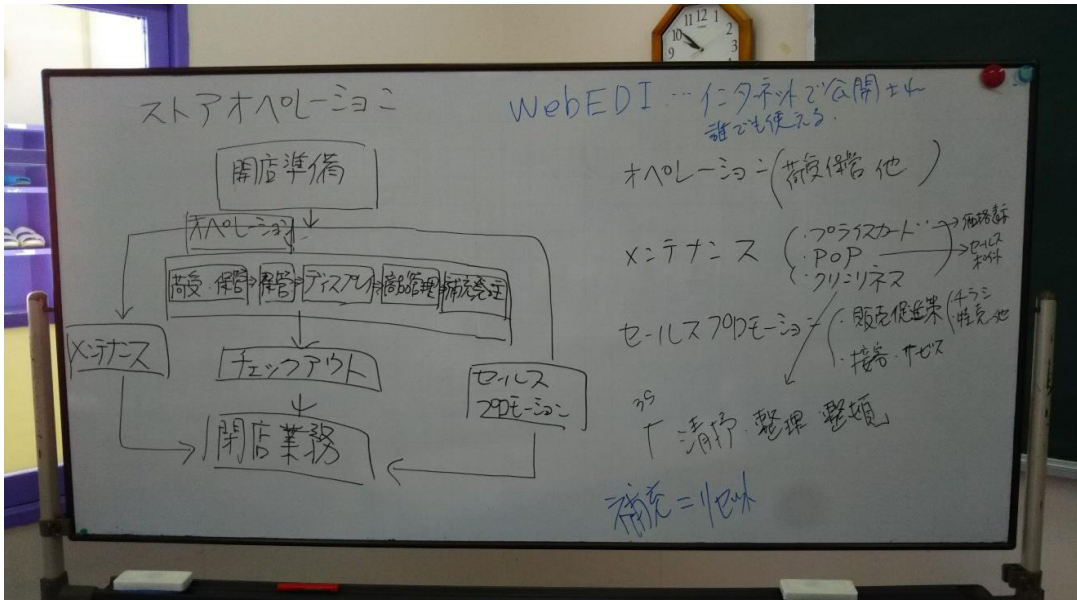 ストアオペレーション
開店準備
オペレーション
荷受 保管 保管 ディスプレイ 商品管理 補充発注
メンテナンス
チェックアウト
セールス
プロモーション
閉店業務
WebEDI…インターネットで公開され
誰でも使える.
オペレーション(荷受 保管 他)
メンテナンス
・プライスカード → 価格表示
・POP → セールス
ポイント
・クリンリネス
セールスプロモーション
・販売促進策(チラシ
・特売 他
・接客・サービス
3S
「清掃・整理 整頓」
補充=リセット
11 12 1
10 2
9 3